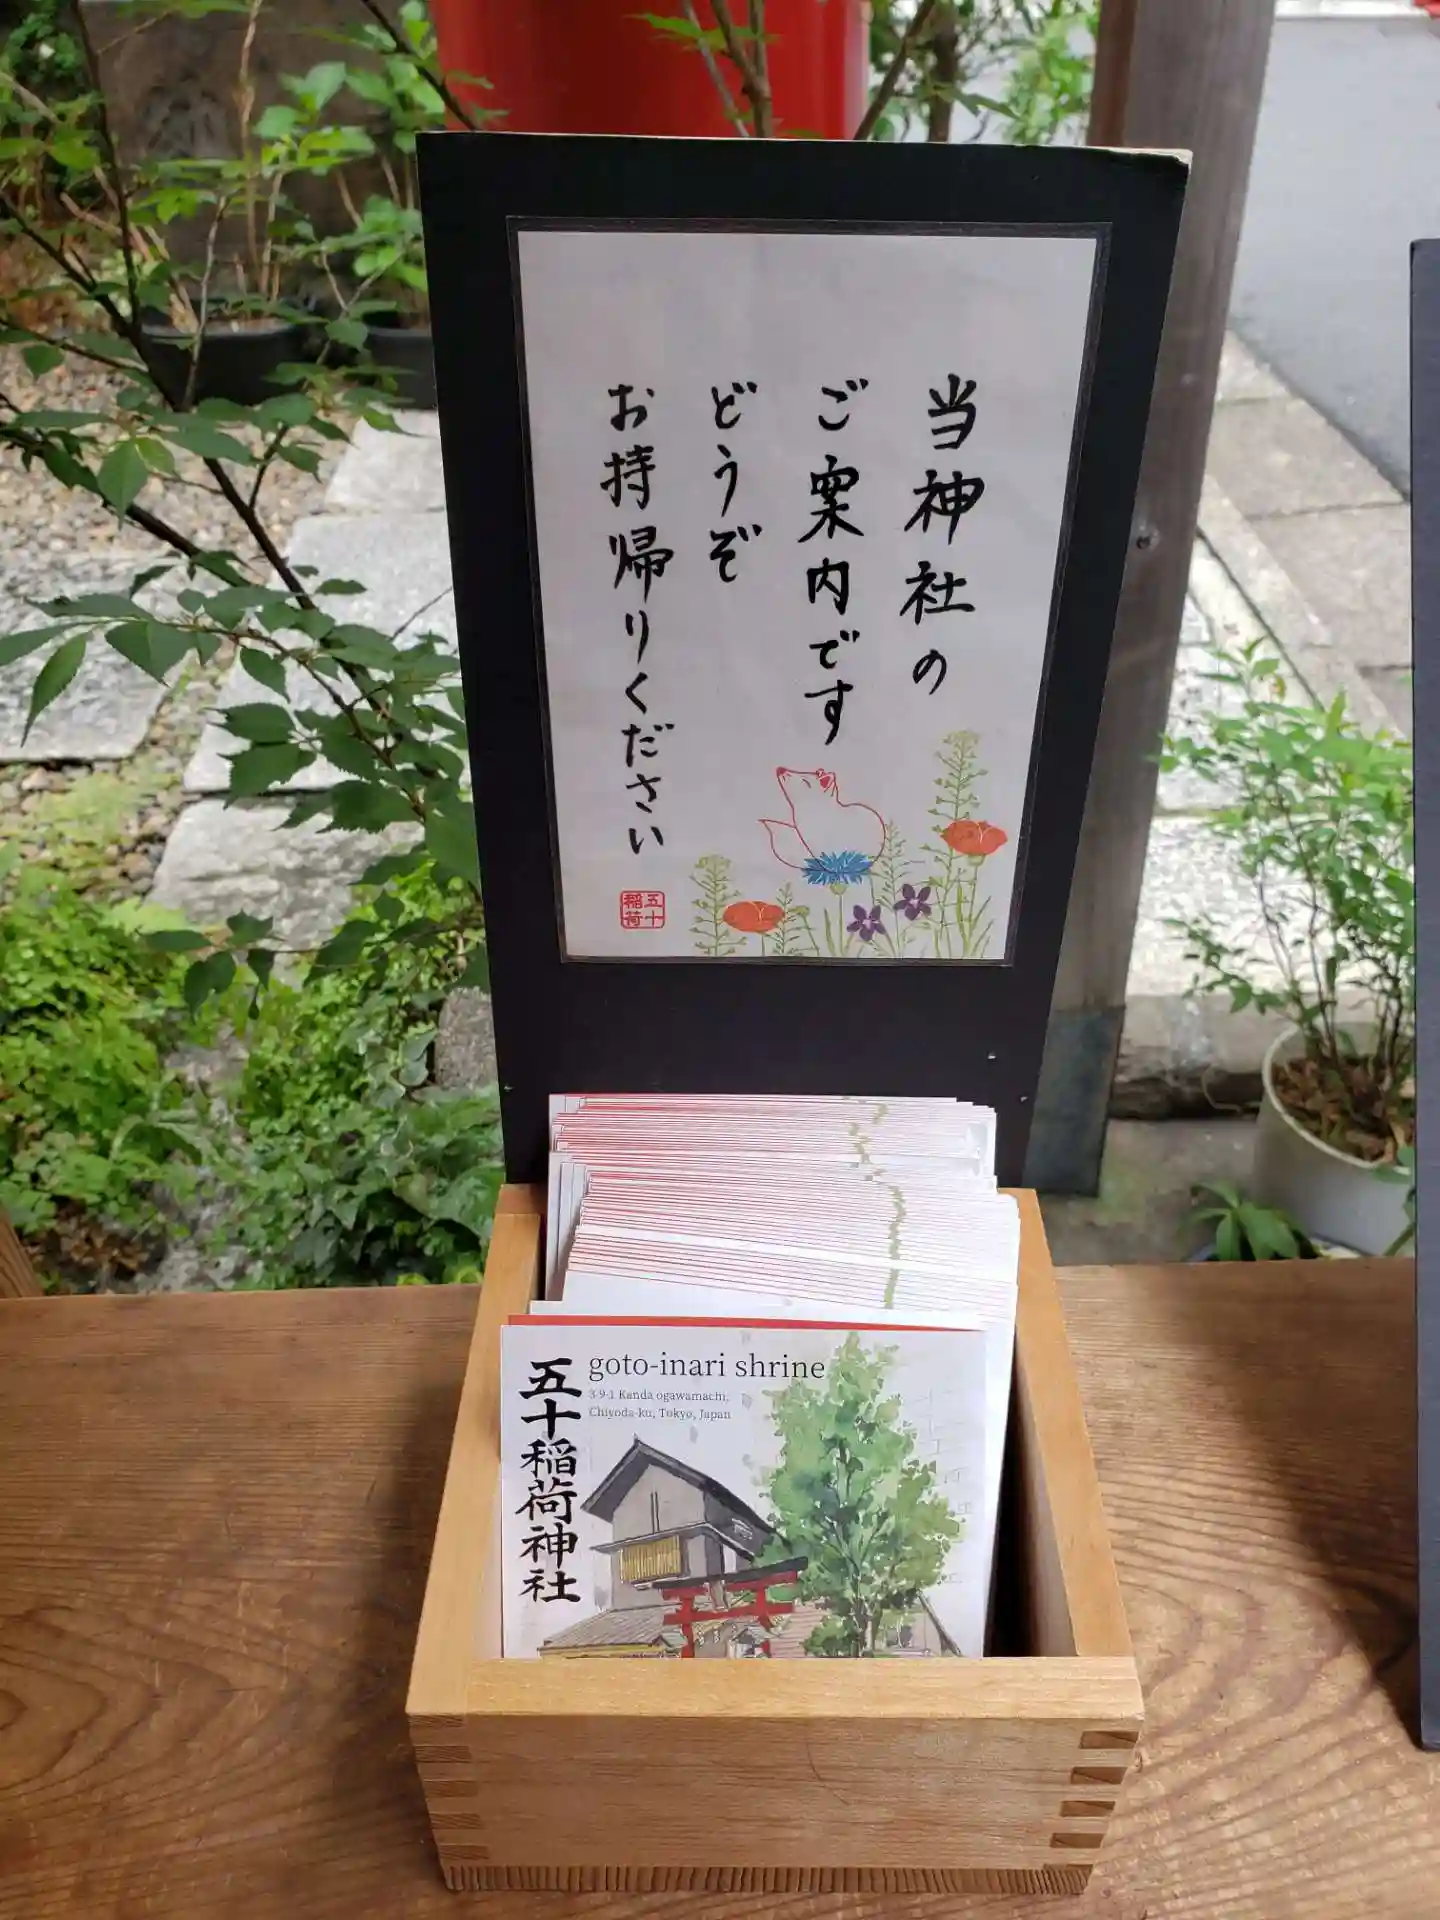 当神社の
ご案内です
どうぞ
お持帰りください
五十
稲荷
五十稲荷神社
goto-inari shrine
3-9-1 Kanda ogawamachi,
Chiyoda-ku, Tokyo, Japan